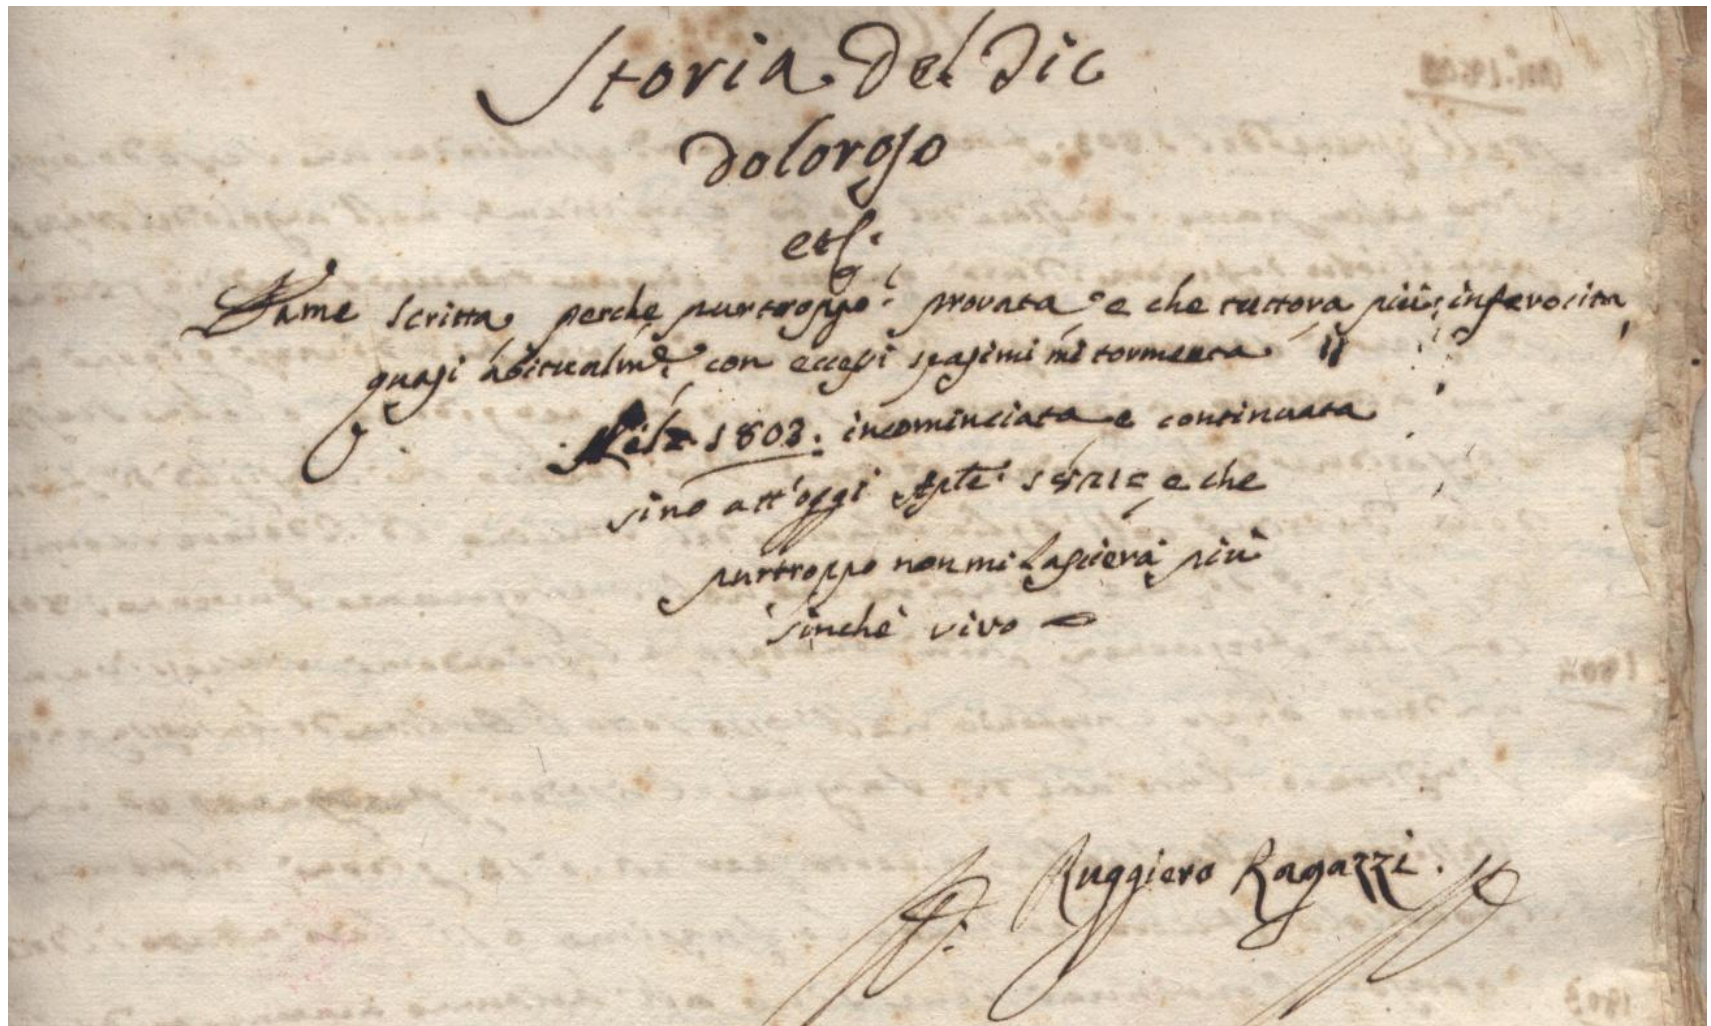 Storia del Tic
doloroso
etc.
Da me scritta, perche purtroppo provata e che tuttora più inferocita,
quasi abitualmte con eccessi spasimi mi tormenta
Nel 1803. incominciata e continuata
sino all'oggi e che
purtroppo non mi lascierà più
sinchè vivo
Ruggiero Ragazzi.